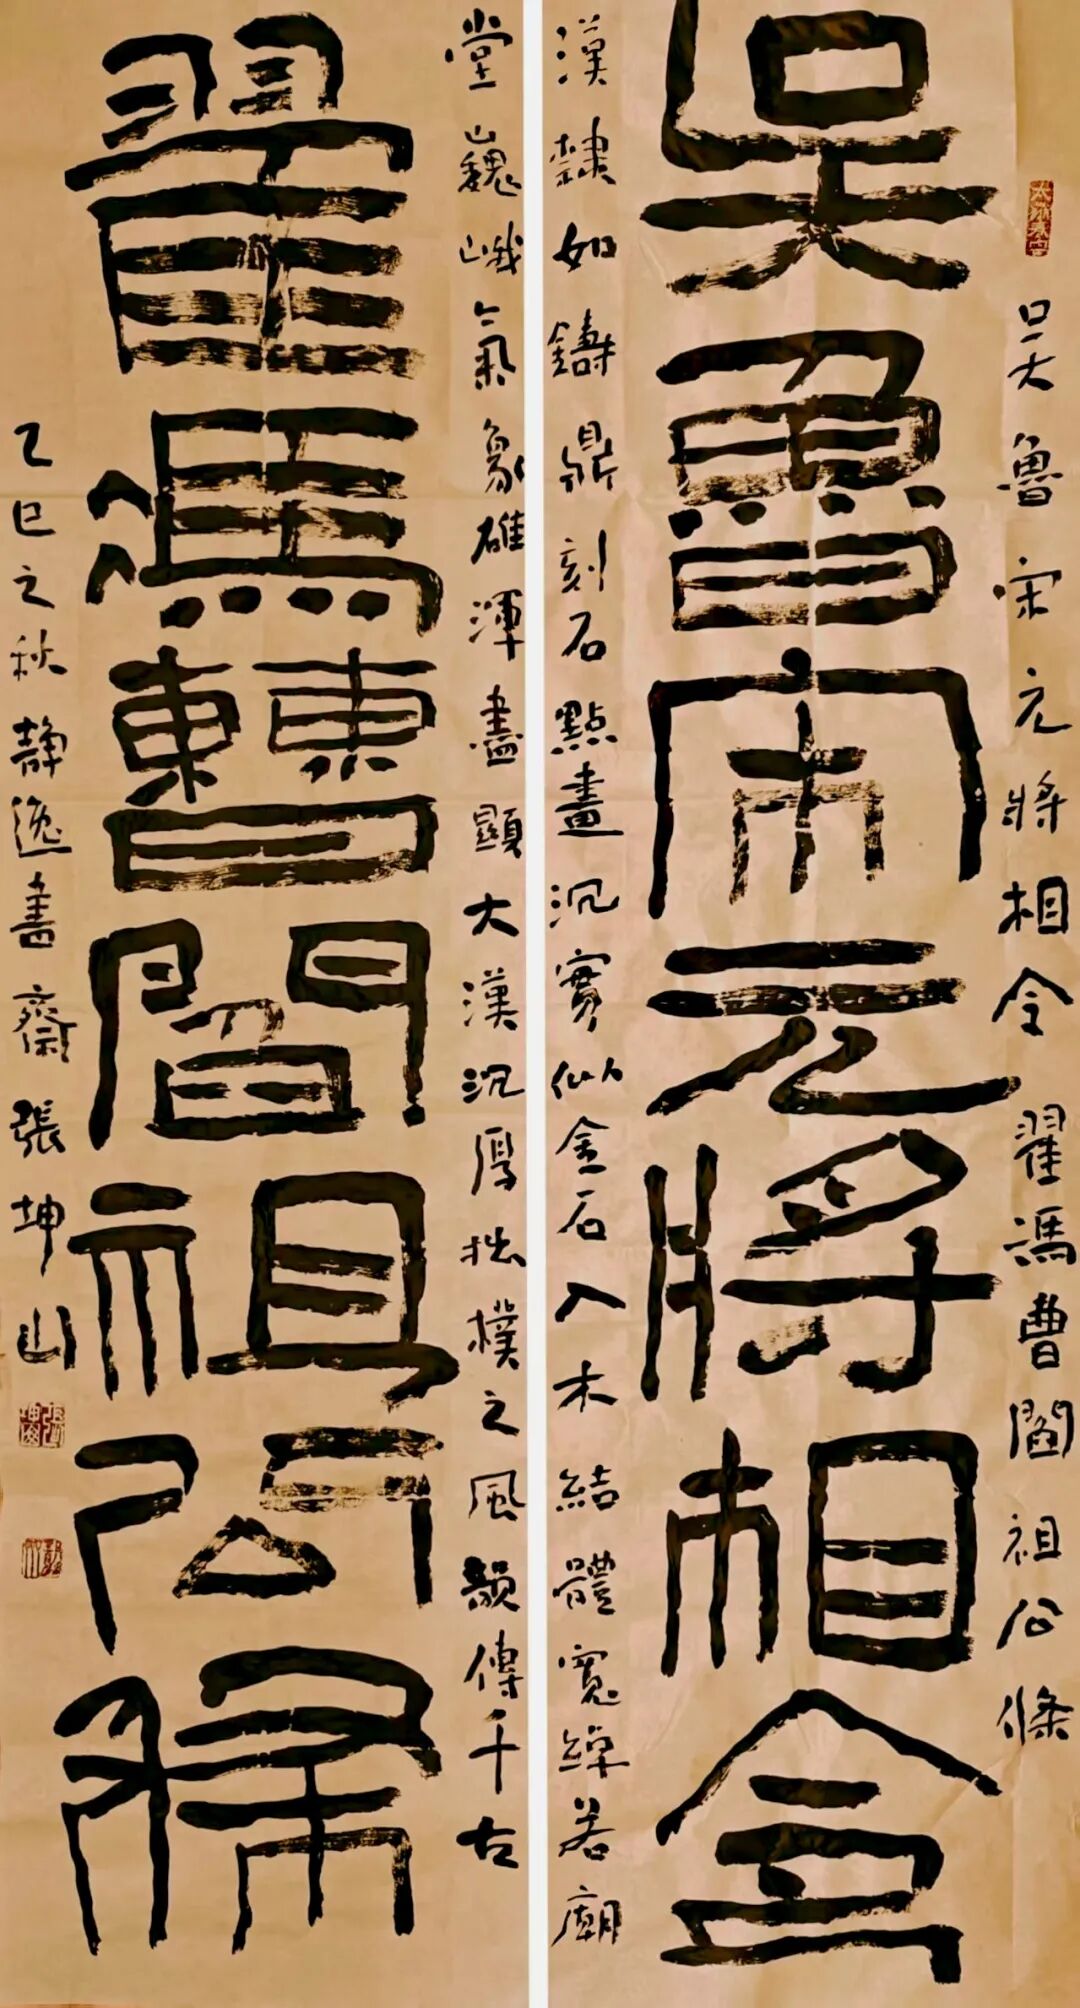 吴魯宋元將相令 翟馮曹閻祖公條
吴魯宋元將相令
漢隸如鑄鼎刻石點畫沉實似金石入木結體寬綽若廟
堂巍峨氣象雄渾盡顯大漢沉厚拙樸之風韻傳千古
翟馮曹閻祖公條
乙巳之秋靜逸書齋張坤山